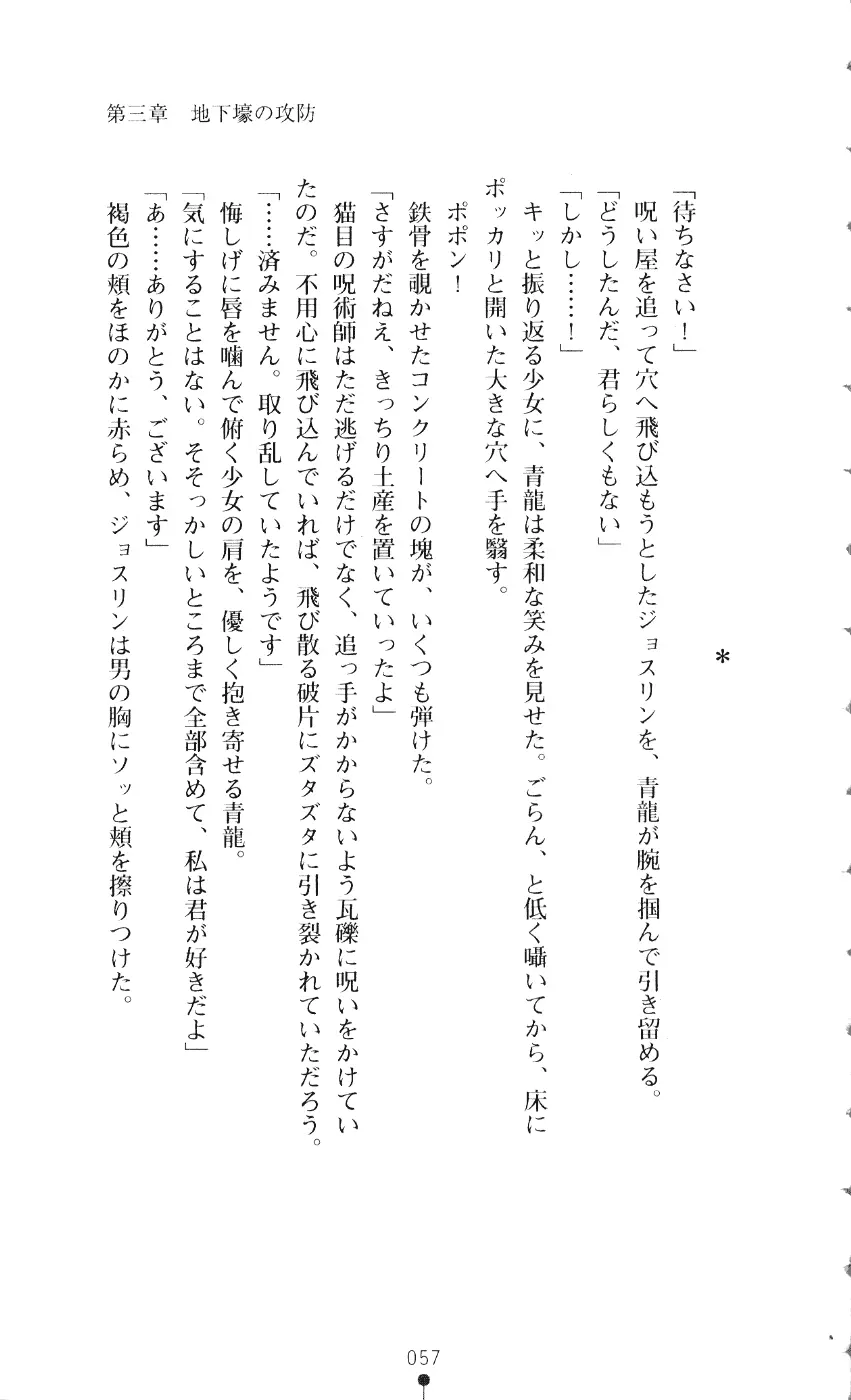 第三章　地下壕の攻防
＊
「待ちなさい！」
呪い屋を追って穴へ飛び込もうとしたジョスリンを、青龍が腕を掴んで引き留める。
「どうしたんだ、君らしくもない」
「しかし……！」
キッと振り返る少女に、青龍は柔和な笑みを見せた。ごらん、と低く囁いてから、床に
ポッカリと開いた大きな穴へ手を翳す。
ポポン！
鉄骨を覗かせたコンクリートの塊が、いくつも弾けた。
「さすがだねえ、きっちり土産を置いていったよ」
猫目の呪術師はただ逃げるだけでなく、追っ手がかからないよう瓦礫に呪いをかけてい
たのだ。不用心に飛び込んでいれば、飛び散る破片にズタズタに引き裂かれていただろう。
「……済みません。取り乱していたようです」
悔しげに唇を噛んで俯く少女の肩を、優しく抱き寄せる青龍。
「気にすることはない。そそっかしいところまで全部含めて、私は君が好きだよ」
「あ……ありがとう、ございます」
褐色の頬をほのかに赤らめ、ジョスリンは男の胸にソッと頬を擦りつけた。
057